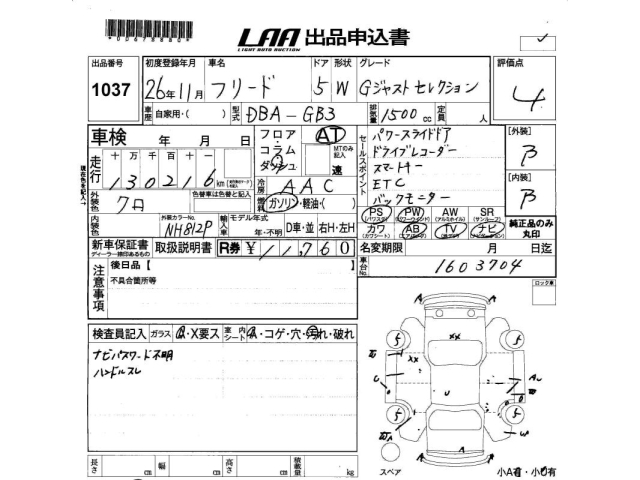 LAA 出品申込書
LIGHT AUTO AUCTION
出品番号 初度登録年月 車名 ドア 形状 グレード 評価点
1037 26年11月 フリード 5 W Gジャスト セレクション 4
車歴 自家用・( ) 型式 DBA-GB3 排気量 1500 cc 定員 人
車検 年 月 日 フロア・コラム・ダッシュ AT MTのみ記入 速
セールスポイント
パワースライドドア
ドライブレコーダー
スマートキー
ETC
バックモニター
[外装] B
[内装] B
走行 十万千百十一
130216 km
冷房 AAC
燃料 ガソリン・軽油・( )
外装色 7ロ 色替車は色替と記入
内装色 外装カラーNo. NH812P 輸入車 モデル年式 年・不明 D車・並 右H・左H
PS PW AW SR
カワ AB TV ナビ
純正品のみ丸印
新車保証書 取扱説明書 R券 ¥11,760
ディーラー捺印あるもの
名変期限 月 日迄
車台No. 1603704
注意事項 後日品【
不具合箇所等
ロック車
検査員記入 ガラス A・X要ス 室内シート A・コゲ・穴・汚れ・破れ
ナビパスワード不明
ハンドルスレ
長さ cm 幅 cm 高さ cm 積載量 kg
スペア 小A有・小U有